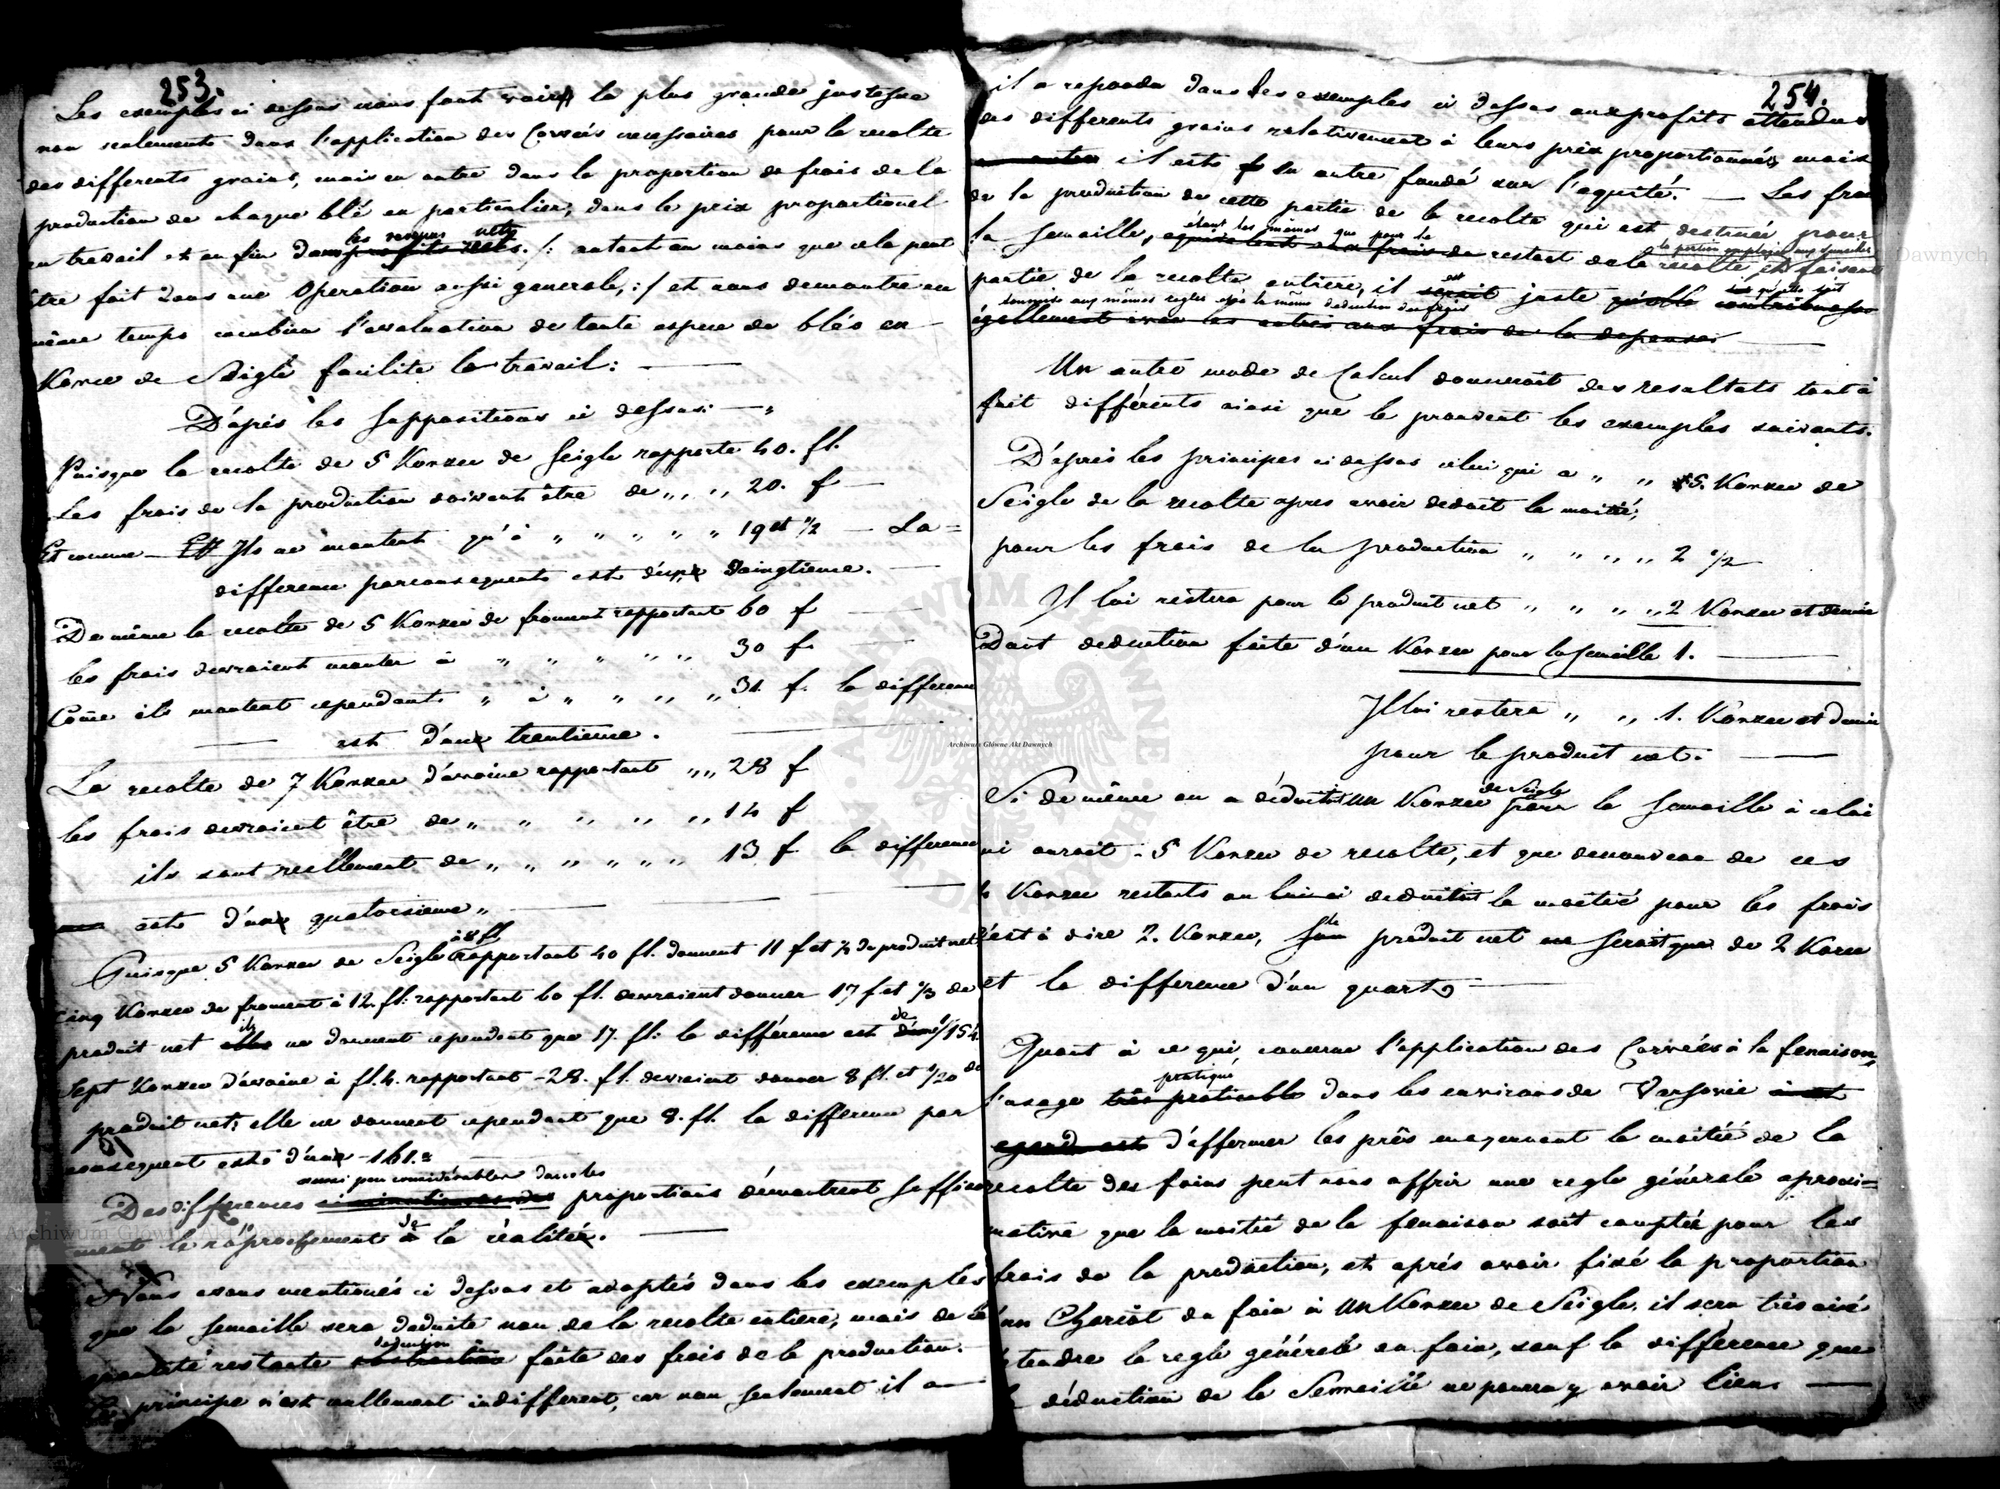 253.
Les exemples ci dessus nous font voir la plus grande justesse
non seulement dans l'application des Corvées necessaires pour la recolte
des differents grains, mais en outre dans la proportion de frais de la
production de chaque blé en particulier, dans le prix proportionel
en travail et en fin dans les revenus nets profits reels. /: autant au moins que cela peut
être fait dans une Operation aussi generale, :/ et nous demontre en
même temps combien l'evaluation de toute espece de blés en
Korzec de Seigle facilite le travail: —
D'après les suppositions ci dessus: —
Puisque la recolte de 5 Korzec de Seigle rapporte 40. fl.
Les frais de la production doivent être de „ „ „ 20. f —
Et comme — Ils ne montent qu'à „ „ „ „ „ 19 et ½ — La =
difference parconsequent est d'un vingtieme. —
De même la recolte de 5 Korzec de froment rapportant 60 f —
les frais devraient monter à „ „ „ „ „ 30 f. —
Come ils montent cependant „ à „ „ „ „ 31. f. la difference
— est d'un trentieme. —
La recolte de 7 Korzec d'avoine rapportant „ „ 28 f
les frais devraient être de „ „ „ „ „ 14 f
ils sont reellement de „ „ „ „ „ „ 13 f la difference
est d'un quatorzieme „ —
Puisque 5 Korzec de Seigle à 8 fl rapportant 40 fl. donnent 11 f et ½ de produit net
Cinq Korzec de froment à 12. fl. rapportant 60 fl. devraient donner 17 f et ⅓ de
produit net ils elles ne donnent cependant que 17. fl: la différence est de d'une 1/154.
Sept Korzec d'avoine à fl. 4. rapportant — 28. fl. devraient donner 8 fl. et 1/20 de
produit net; elle ne donnent cependant que 8. fl. la difference par
consequent est d'une — 161. =
Des differences aussi peu considérables dans les proportions démontrent suffisa
ment le raprochement de à la réalité. —
Nous avons mentionés ci dessus et adoptés dans les exemples
que la Semaille sera deduite non de la recolte entiere, mais de la
quantité restante deduction abstraction faite des frais de la production. —
principe n'est nullement indifferent, car non seulement il a —
254.
il a repondu dans les exemples ci dessus aux profits attendus
des differents grains relativement à leurs prix proportionnés, mais
en outre il est en outre fondé sur l'equité. — Les frais
de la production de cette partie de la recolte qui est destinée pour
la Semaille, étant les mêmes que pour le restant de la recolte la portion employée aux semailles et faisant
partie de la recolte entiere, il est serait juste qu'elle soit qu'elle contribue
soumise aux mêmes regles après la même deduction des frais
egallement avec les autres aux frais de la depense. —
Un autre mode de Calcul donneroit des resultats tout à
fait différents ainsi que le prouvent les exemples suivants.
D'après les principes ci dessus celui qui a „ „ 5. Korzec de
Seigle de la recolte apres avoir deduit la moitié,
pour les frais de la production „ „ „ „ 2 ½
Il lui restera pour le produit net „ „ „ „ 2 Korzec et demie
Dont deduction faite d'un Korzec pour la Semaille 1. —
Il lui restera „ „ 1. Korzec et demie
pour le produit net. —
Si de même on a déduit un Korzec de Seigle pour la Semaille à celui
qui auroit 5 Korzec de recolte, et que denouveau de ces
4 Korzec restants on lui deduisit la moitié pour les frais
c'est à dire 2. Korzec, son produit net ne seroit que de 2 Korzec
et la difference d'un quart —
Quant à ce qui concerne l'application des Corvées à la fenaison,
l'usage pratique très praticable dans les environs de Varsovie à cet
egard est d'affermer les prés moyennant la moitié de la
recolte des foins peut nous offrir une regle générale aproxi=
mative que la moitié de la fenaison soit comptée pour les
frais de la production, et après avoir fixé la proportion
d'un Chariot de foin à un Korzec de Seigle, il sera très aisé
d'etendre la regle générale au foin, sauf la difference que
la déduction de la Semaille ne pourra y avoir lieu. —
Archiwum Główne Akt Dawnych
ARCHIWUM GŁÓWNE AKT DAWNYCH